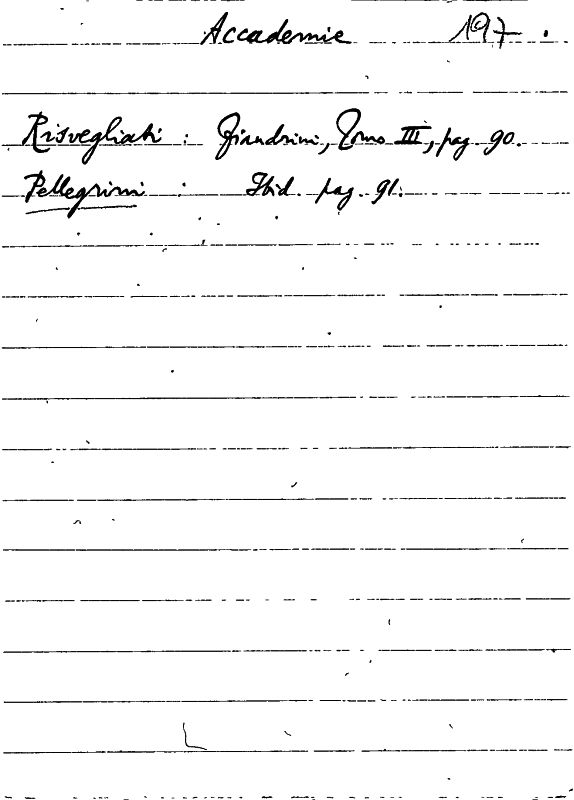 Accademie 197.
Risvegliati : Fiandrini, Tomo III, pag. 90.
Pellegrini : Ibid. pag. 91.